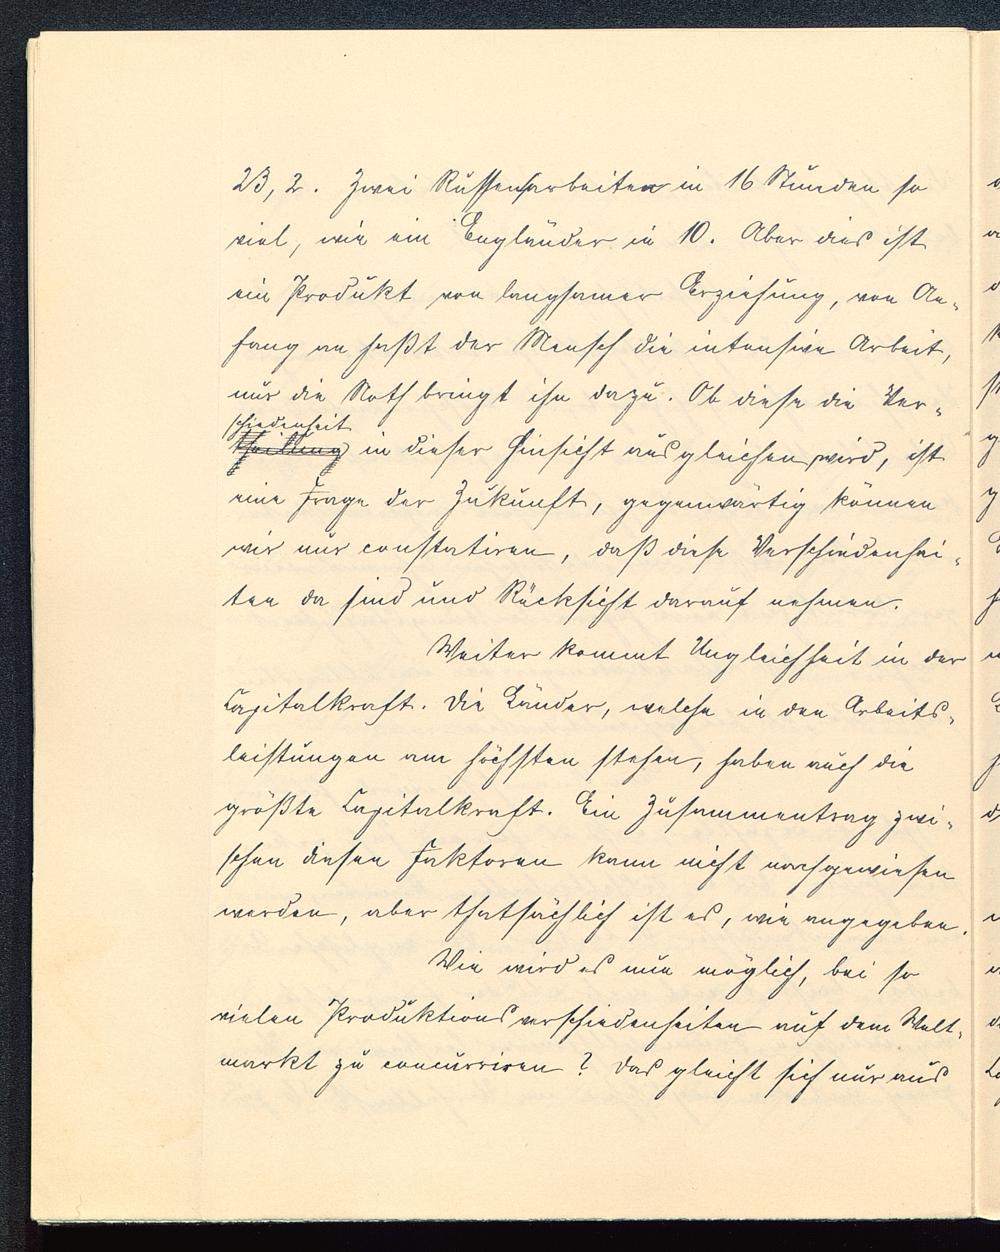 23,2. Zwei Russen arbeiten in 16 Stunden so
viel, wie ein Engländer in 10. Aber dies ist
ein Produkt von langsamer Erziehung, von An-
fang an haßt der Mensch die intensive Arbeit,
nur die Noth bringt ihn dazu. Ob diese die Ver-
schiedenheit
theilung in dieser Hinsicht ausgleichen wird, ist
eine Frage der Zukunft, gegenwärtig können
wir nur constatiren, daß diese Verschiedenhei-
ten da sind und Rücksicht darauf nehmen.
Weiter kommt Ungleichheit in der
Capitalkraft. Die Länder, welche in den Arbeits-
leistungen am höchsten stehen, haben auch die
größte Capitalkraft. Ein Zusammentrag zwi-
schen diesen Faktoren kann nicht nachgewiesen
werden, aber thatsächlich ist es, wie angegeben.
Wie wird es nun möglich, bei so
vielen Produktionsverschiedenheiten auf dem Welt-
markt zu concurriren? Das gleicht sich nur aus